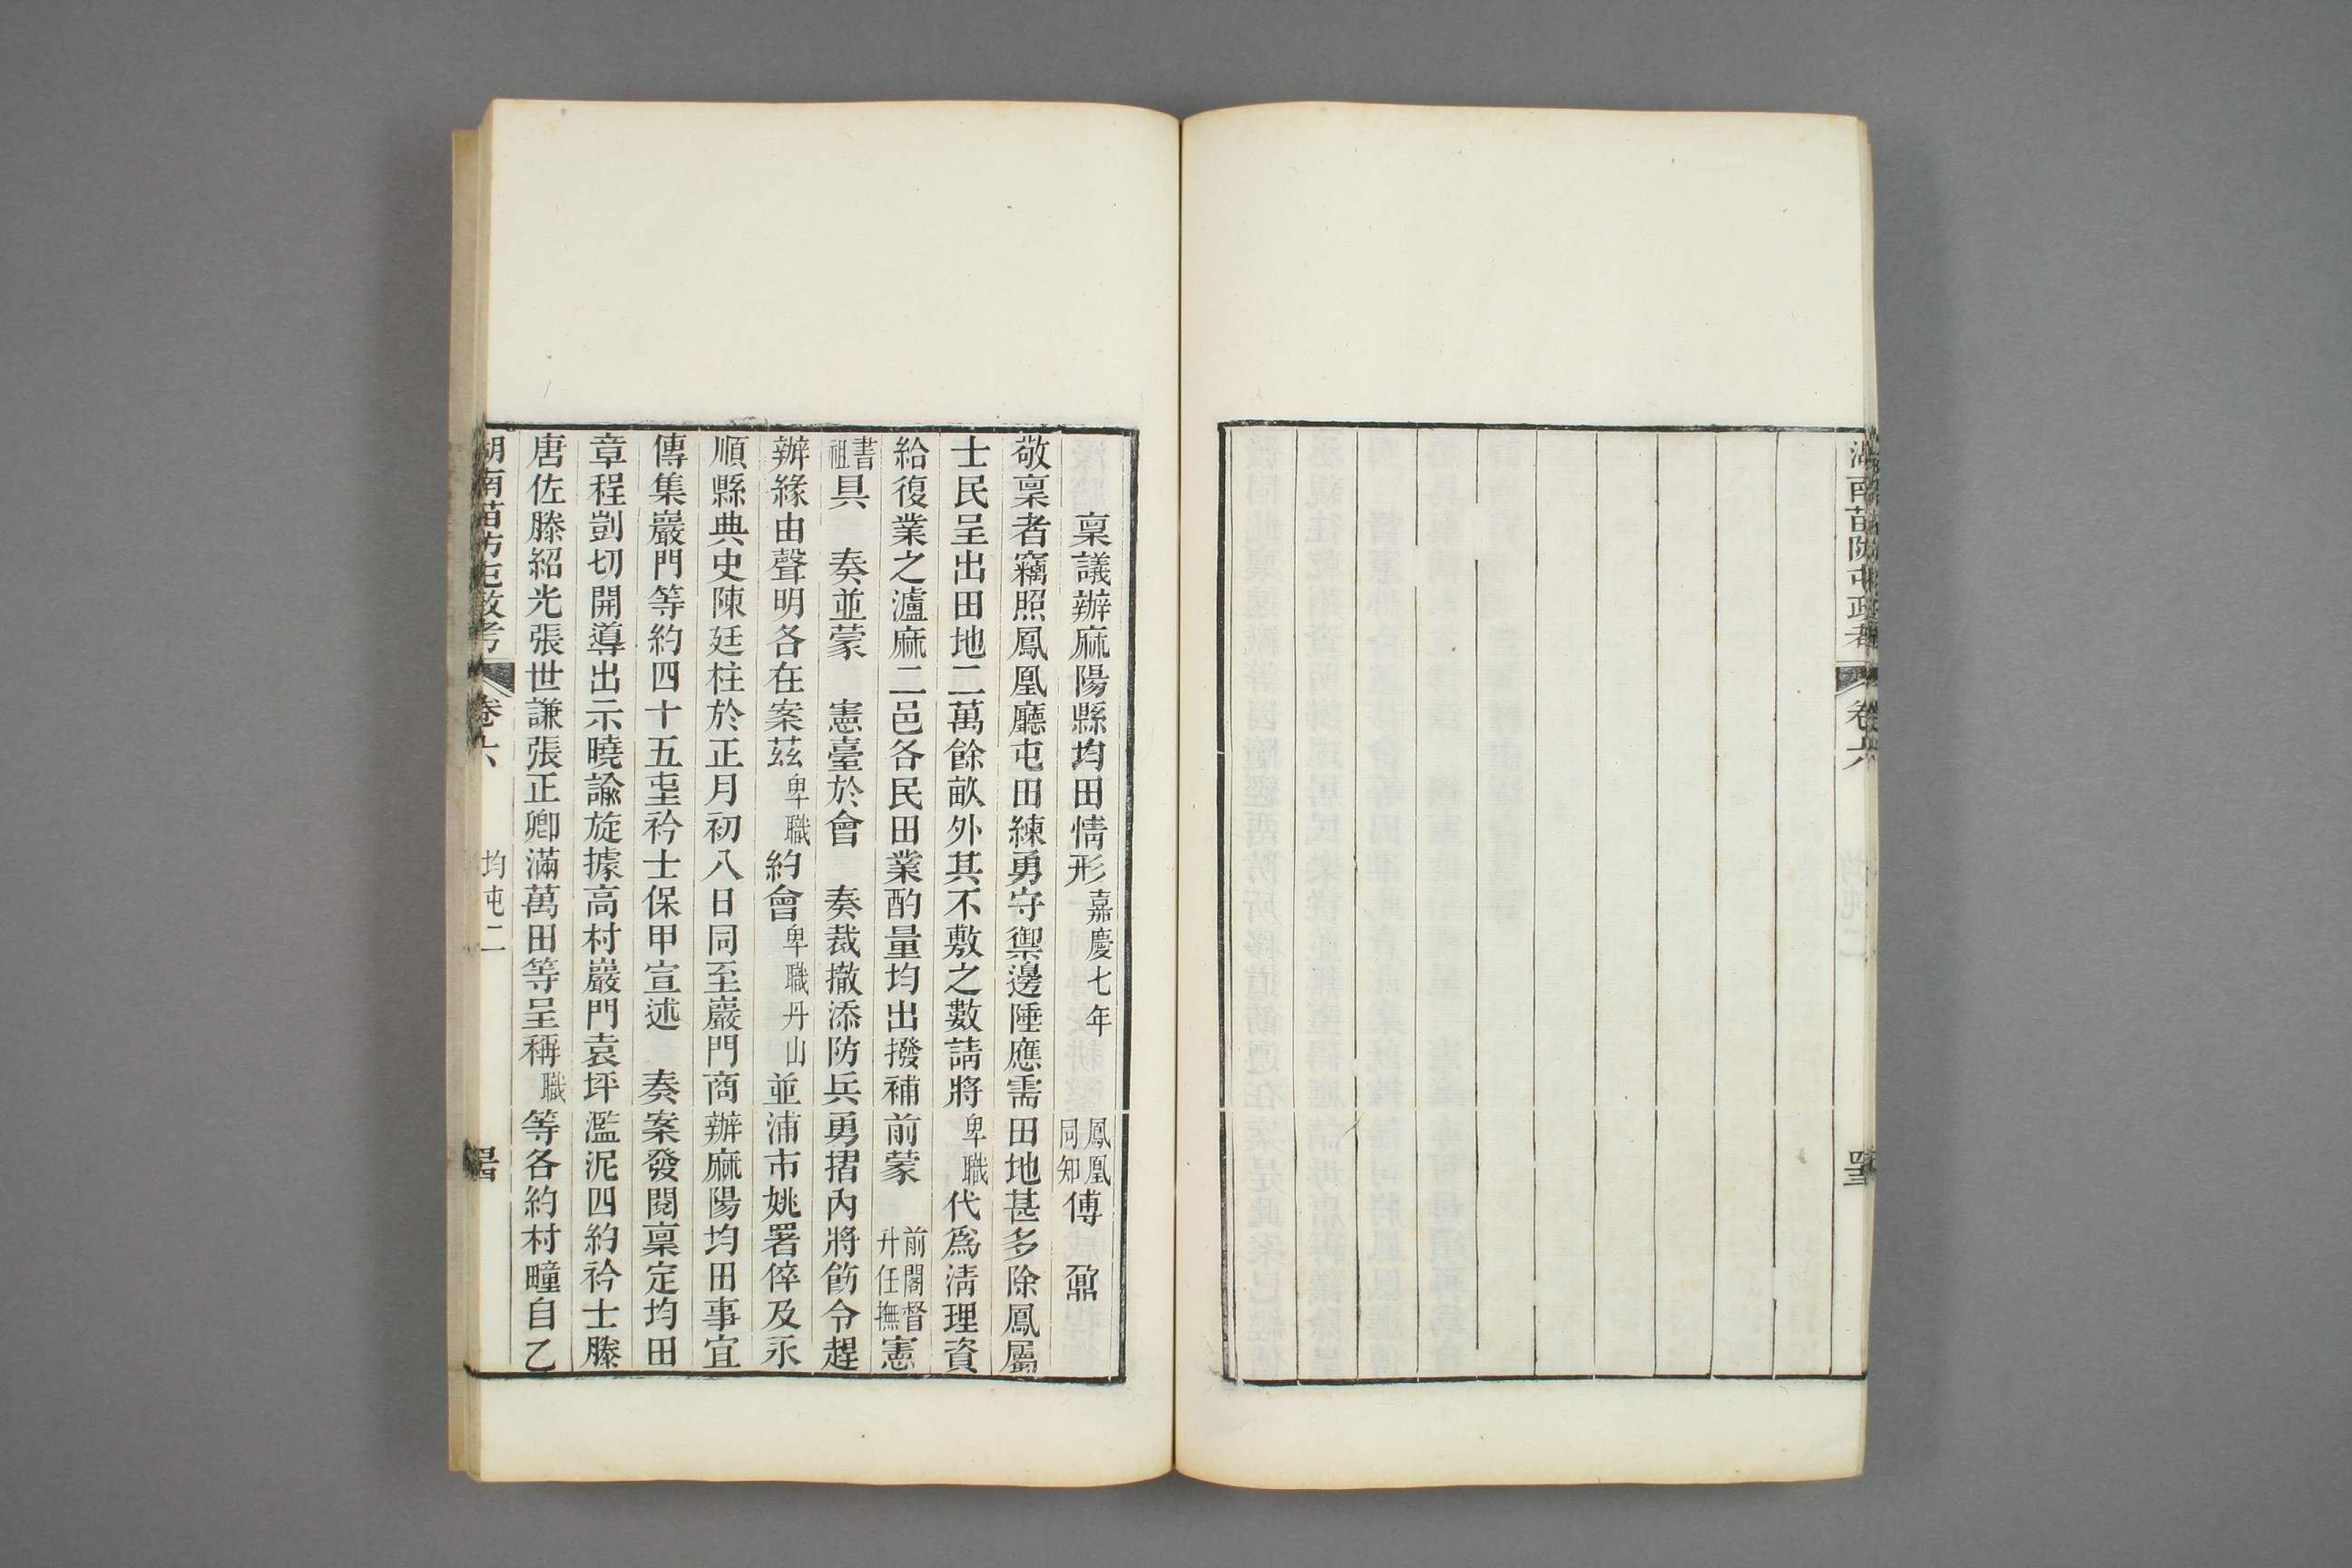 湖南苗防屯政考 卷六
稟議辦麻陽縣均田情形 嘉慶七年 鳳凰同知 傅鼐
敬稟者竊照鳳凰廳屯田練勇守禦邊陲應需田地甚多除鳳屬
士民呈出田地二萬餘畝外其不敷之數請將卑職代爲淸理資
給復業之瀘麻二邑各民田業酌量均出撥補前蒙 前閣督升任撫憲
書祖具 奏並蒙 憲臺於會 奏裁撤添防兵勇摺內將飭令趕
辦緣由聲明各在案茲卑職約會卑職丹山並浦市姚署倅及永
順縣典史陳廷柱於正月初八日同至巖門商辦麻陽均田事宜
傳集巖門等約四十五里衿士保甲宣述 奏案發閱稟定均田
章程剴切開導出示曉諭旋據高村巖門袁坪濫泥四約衿士滕
唐佐滕紹光張世謙張正卿滿萬田等呈稱職等各約村疃自乙
湖南苗防屯政考 卷六 均屯二